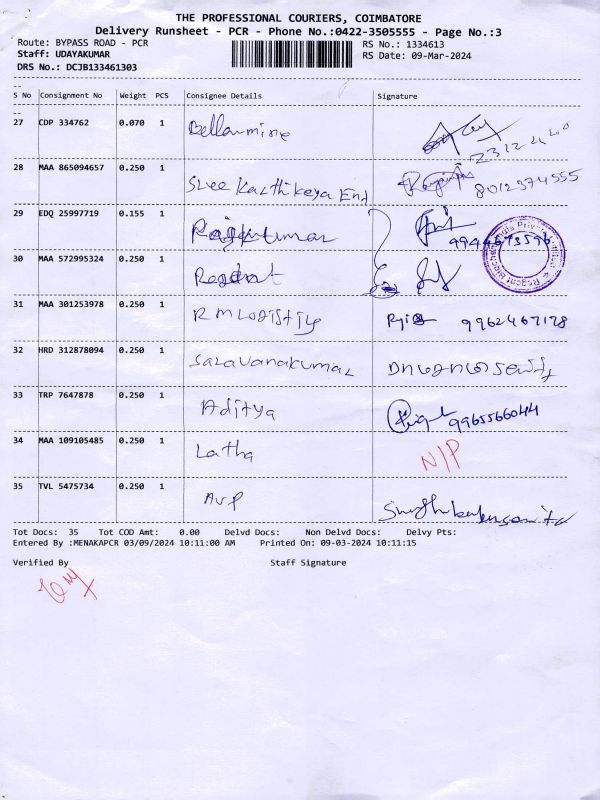 THE PROFESSIONAL COURIERS, COIMBATORE
Delivery Runsheet - PCR - Phone No.:0422-3505555 - Page No.:3
Route: BYPASS ROAD - PCR RS No.: 1334613
Staff: UDAYAKUMAR RS Date: 09-Mar-2024
DRS No.: DCJB133461303
S No Consignment No Weight PCS Consignee Details Signature
27 CDP 334762 0.070 1 Bellarmine
28 MAA 865094657 0.250 1 Sree Karthikeya End 8012374555
29 EDQ 25997719 0.155 1 Rajkumar 9944673596
30 MAA 572995324 0.250 1
31 MAA 301253978 0.250 1 RM Logistic 9962467128
32 HRD 312878094 0.250 1 Saravanakumar
33 TRP 7647878 0.250 1 Aditya 9965566044
34 MAA 109105485 0.250 1 Latha N/P
35 TVL 5475734 0.250 1 AVP
Tot Docs: 35 Tot COD Amt: 0.00 Delvd Docs: Non Delvd Docs: Delvy Pts:
Entered By :MENAKAPCR 03/09/2024 10:11:00 AM Printed On: 09-03-2024 10:11:15
Verified By Staff Signature